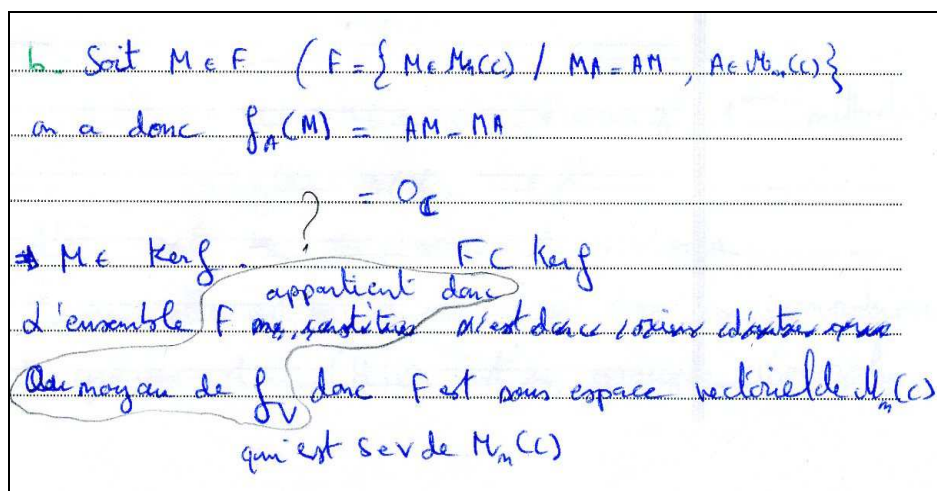 b. Soit M ∈ F ( F = { M ∈ Mn(C) / MA = AM , A ∈ Mn(C) }
on a donc fA(M) = AM - MA
= 0C
?
⇒ M ∈ Ker f . F ⊂ Ker f
appartient donc
L'ensemble F n'est donc
au noyau de f donc F est sous espace vectoriel de Mn(C)
qui est sev de Mn(C)